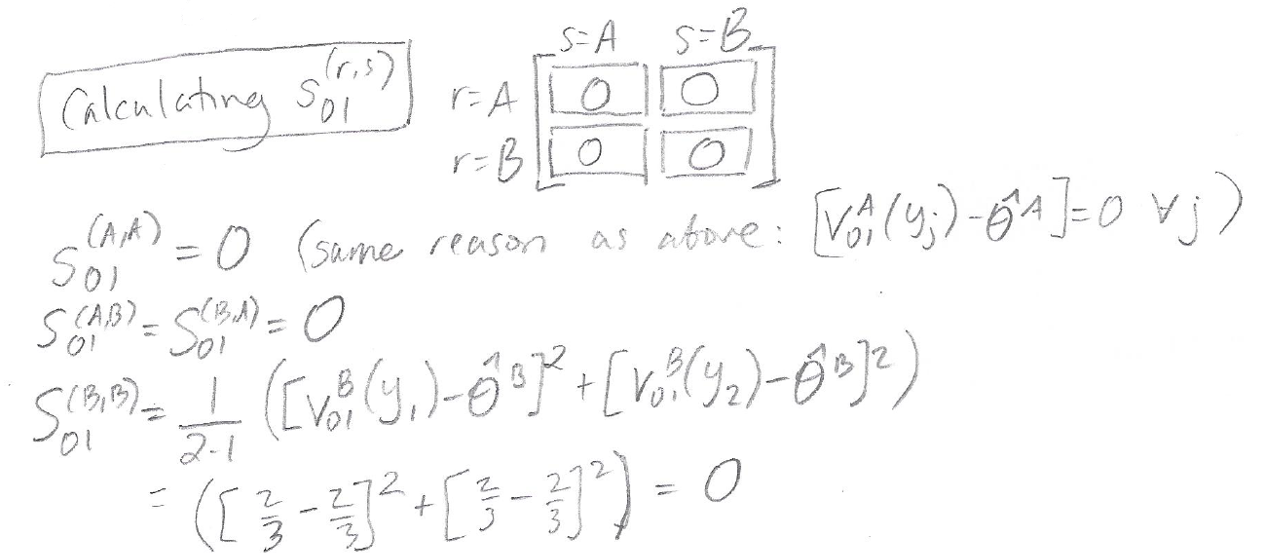 s=A s=B
Calculating S₀₁^(r,s) r=A [0 0]
r=B [0 0]
S₀₁^(A,A) = 0 (same reason as above: [V₀₁^A(y_j) - θ̂^A] = 0 ∀j)
S₀₁^(A,B) = S₀₁^(B,A) = 0
S₀₁^(B,B) = 1/(2-1) ([V₀₁^B(y₁) - θ̂^B]² + [V₀₁^B(y₂) - θ̂^B]²)
= ([2/3 - 2/3]² + [2/3 - 2/3]²) = 0